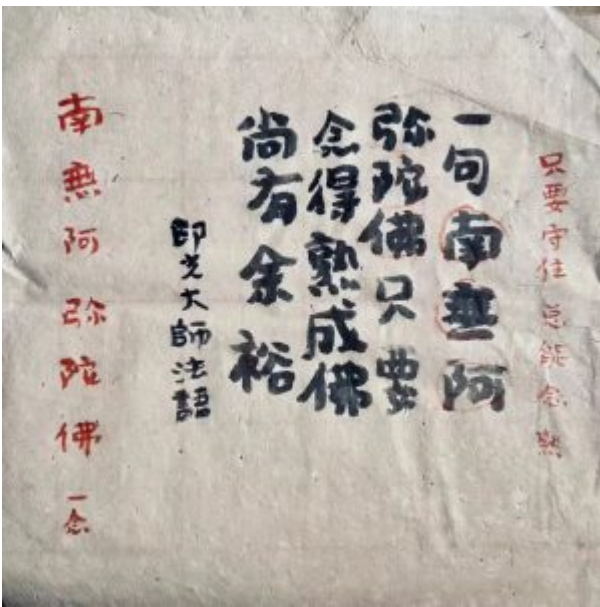 只要守住总能念熟
一句南無阿
弥陀佛只要
念得熟成佛
尚有余裕
印光大師法語
南無阿弥陀佛一念